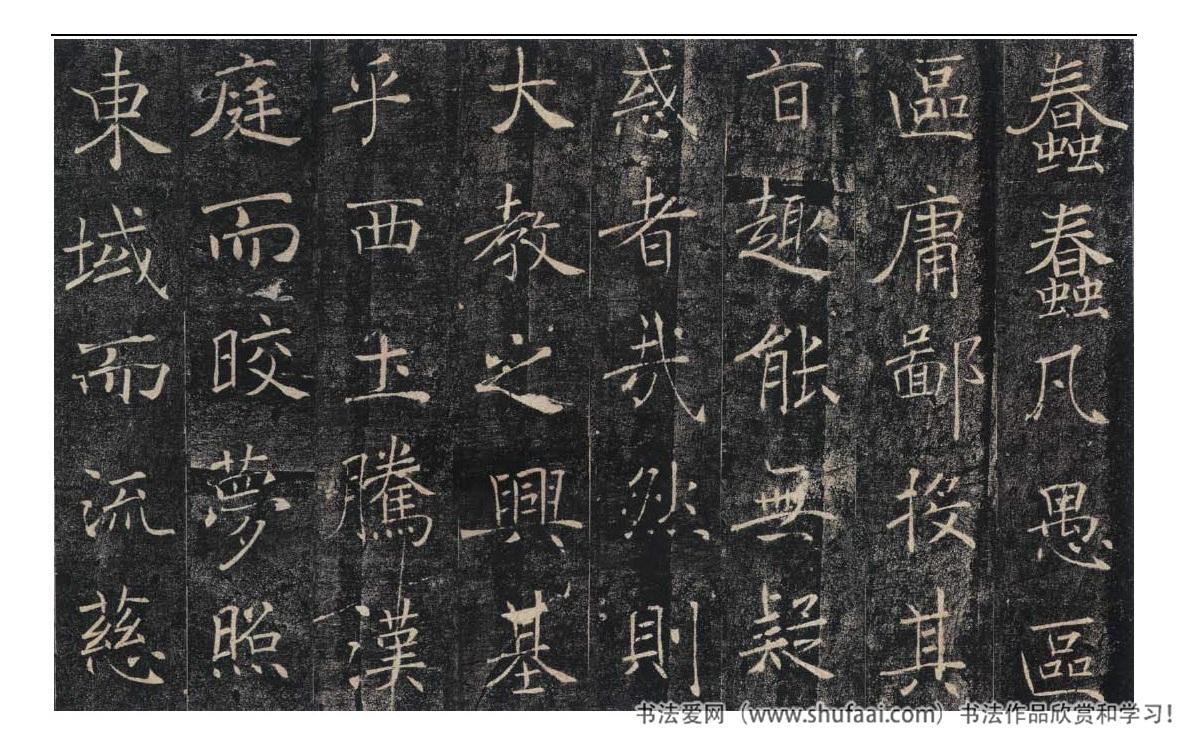 蠢蠢凡愚區
區庸鄙投其
旨趣能無疑
惑者哉然則
大教之興基
乎西土騰漢
庭而皎夢照
東域而流慈
书法爱网（www.shufaai.com）书法作品欣赏和学习！